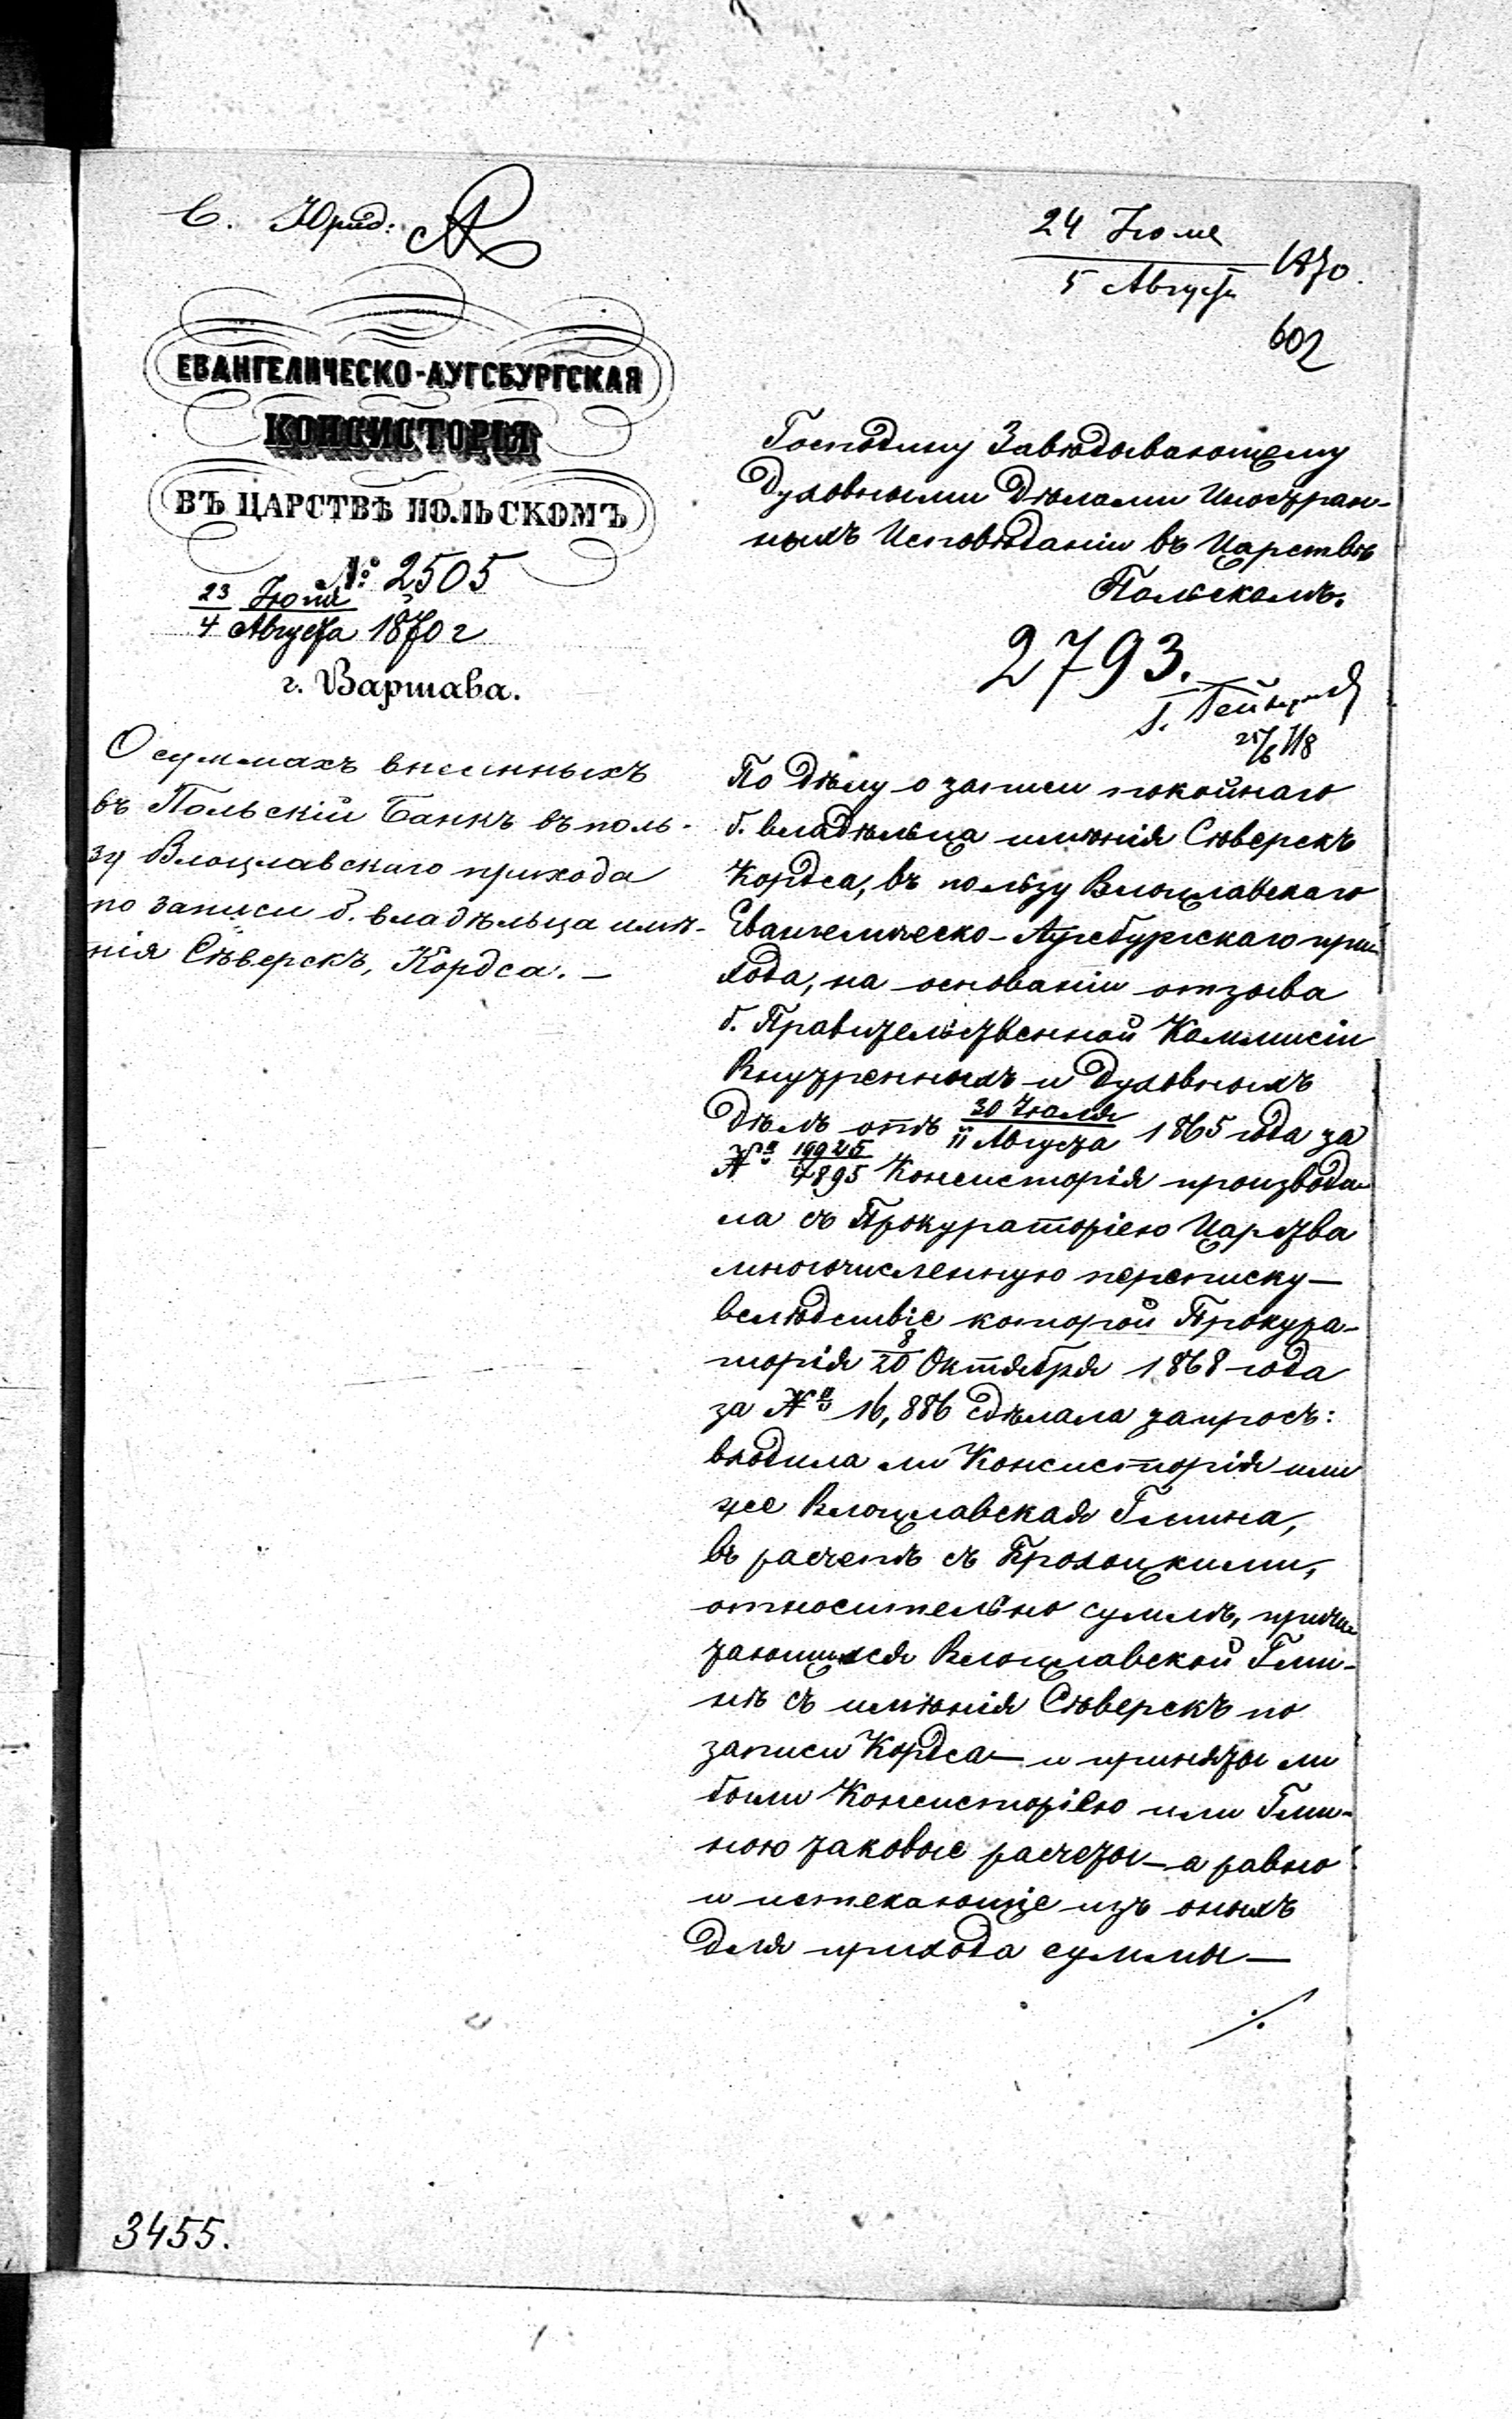 С. Юрид:
24 Іюля
5 Августа 1870.
602
ЕВАНГЕЛИЧЕСКО-АУГСБУРГСКАЯ
КОНСИСТОРІЯ
ВЪ ЦАРСТВѢ ПОЛЬСКОМЪ
№ 2505
23 Іюля
4 Августа 1870 г
г. Варшава.
О суммахъ внесенныхъ
въ Польскій Банкъ въ поль-
зу Влоцлавскаго прихода
по записи б. владѣльца имѣ-
нія Сѣверскъ, Кордса. —
3455.
Господину Завѣдывающему
Духовными Дѣлами Иностран-
ныхъ Исповѣданіи въ Царствѣ
Польскомъ.
2793.
По дѣлу о записи покойнаго
б. владѣльца имѣнія Сѣверскъ
Кордса, въ пользу Влоцлавскаго
Евангелическо-Аугсбургскаго при-
хода, на основаніи отзыва
б. Правительственной Коммисіи
Внутренныхъ и Духовныхъ
Дѣлъ отъ 30 Іюля / 11 Августа 1865 года за
№ 19925/4895 Консисторія производи-
ла съ Прокураторіею Царства
многочисленную переписку —
вслѣдствіе которой Прокура-
торія 8/20 Октября 1868 года
за № 16,886 сдѣлала запросъ:
входила ли Консисторія или
же Влоцлавская Гмина,
въ расчетъ съ Прохоцкими,
относительно суммъ, причи-
тающихся Влоцлавской Гми-
нѣ съ имѣнія Сѣверскъ по
записи Кордса — и приняты ли
были Консисторіею или Гми-
ною таковые расчеты — а равно
и истекающіе изъ оныхъ
для прихода суммы —
./.